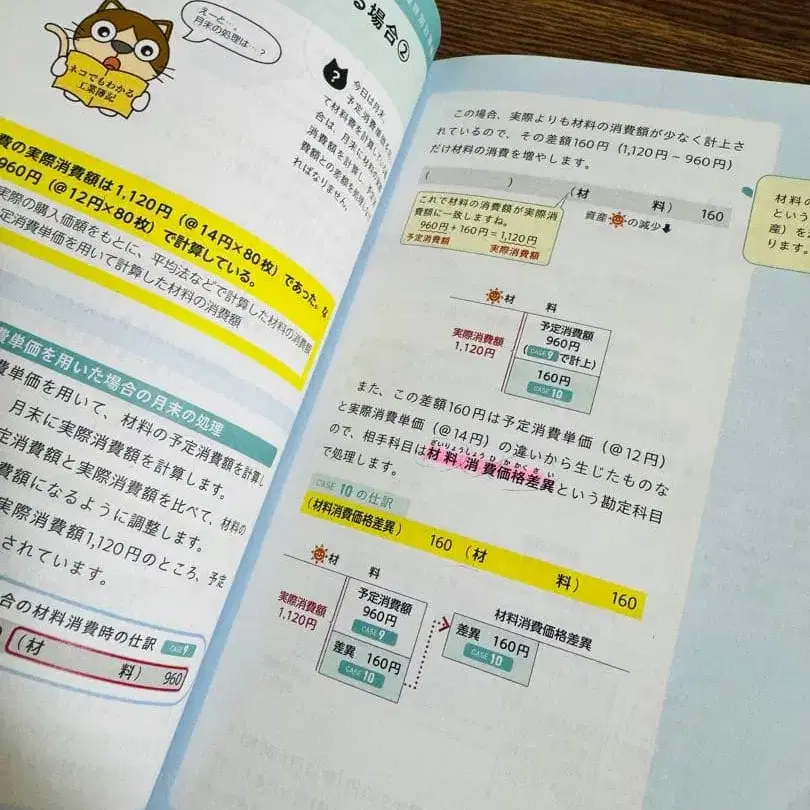 る場合②
えーと…。
月末の処理は…？
ネコでもわかる
工業簿記
?
今日は月末
予定消費単価を
て材料費を計算してい
合は、月末に材料の
消費額を計算し、予定
費額との差額を処理しな
ければなりません。
費の実際消費額は1,120円（@14円×80枚）であった。な
960円（@12円×80枚）で計算している。
実際の購入価額をもとに、平均法などで計算した材料の消費額
定消費単価を用いて計算した材料の消費額
費単価を用いた場合の月末の処理
費単価を用いて、材料の予定消費額を計算し
月末に実際消費額を計算します。
定消費額と実際消費額を比べて、材料の
費額になるように調整します。
実際消費額1,120円のところ、予定
されています。
合の材料消費時の仕訳 CASE 9
（材　　料） 960
この場合、実際よりも材料の消費額が少なく計上さ
れているので、その差額160円（1,120円－960円）
だけ材料の消費を増やします。
（　　　　）　　（材　　料） 160
これで材料の消費額が実際消
費額に一致しますね。
960円＋160円＝1,120円
予定消費額　実際消費額
資産の減少
材料の
という
産）を
ります。
材　料
実際消費額
1,120円
予定消費額
960円
（CASE 9 で計上）
160円
CASE 10
また、この差額160円は予定消費単価（@12円）
と実際消費単価（@14円）の違いから生じたものな
ざいりょうしょうひかかくさい
ので、相手科目は材料消費価格差異という勘定科目
で処理します。
CASE 10 の仕訳
（材料消費価格差異） 160 （材　　料） 160
材　料
実際消費額
1,120円
予定消費額
960円
CASE 9
差異 160円
CASE 10
材料消費価格差異
差異 160円
CASE 10